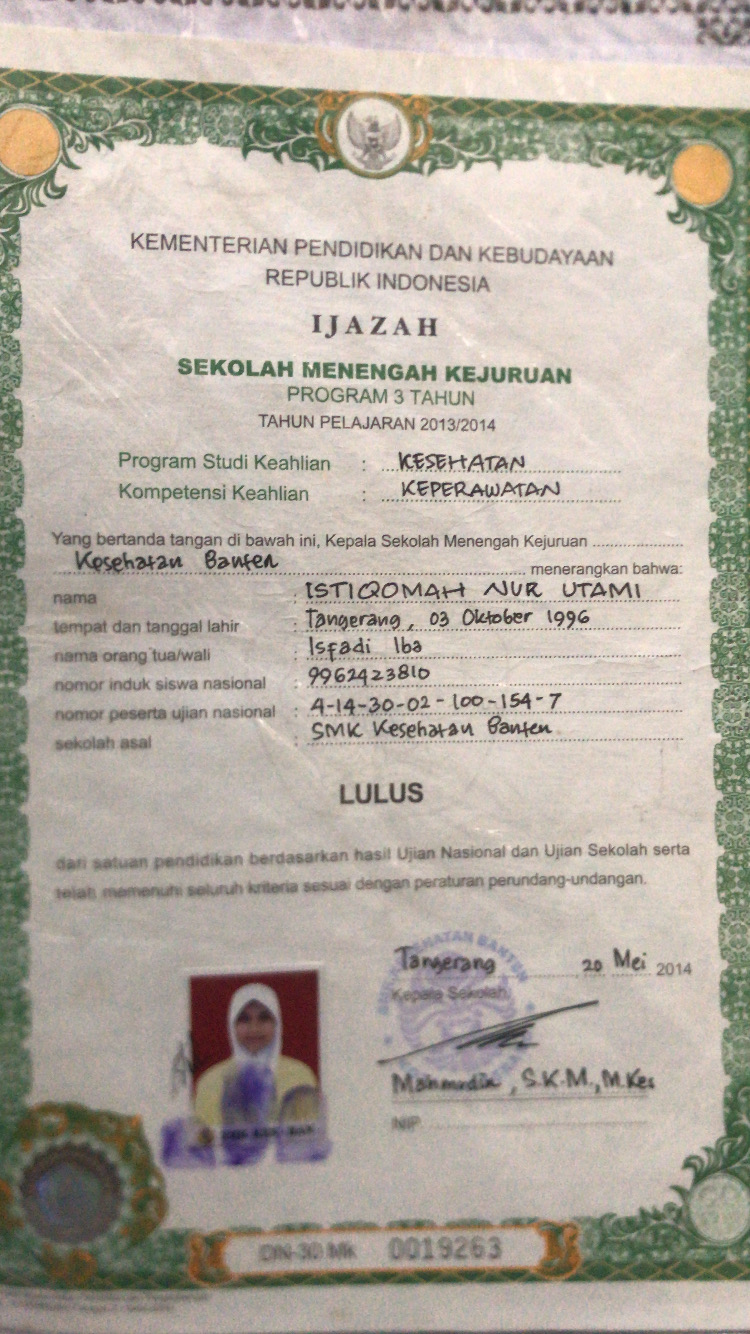 KEMENTERIAN PENDIDIKAN DAN KEBUDAYAAN
REPUBLIK INDONESIA
IJAZAH
SEKOLAH MENENGAH KEJURUAN
PROGRAM 3 TAHUN
TAHUN PELAJARAN 2013/2014
Program Studi Keahlian : KESEHATAN
Kompetensi Keahlian : KEPERAWATAN
Yang bertanda tangan di bawah ini, Kepala Sekolah Menengah Kejuruan
Kesehatan Banten menerangkan bahwa:
nama : ISTIQOMAH NUR UTAMI
tempat dan tanggal lahir : Tangerang, 03 Oktober 1996
nama orang tua/wali : Isfadi Iba
nomor induk siswa nasional : 9962423810
nomor peserta ujian nasional : 4-14-30-02-100-154-7
sekolah asal : SMK Kesehatan Banten
LULUS
dari satuan pendidikan berdasarkan hasil Ujian Nasional dan Ujian Sekolah serta
telah memenuhi seluruh kriteria sesuai dengan peraturan perundang-undangan.
Tangerang 20 Mei 2014
Kepala Sekolah
Mahmudin, S.K.M., M.Kes
NIP
DN-30 MK 0019263